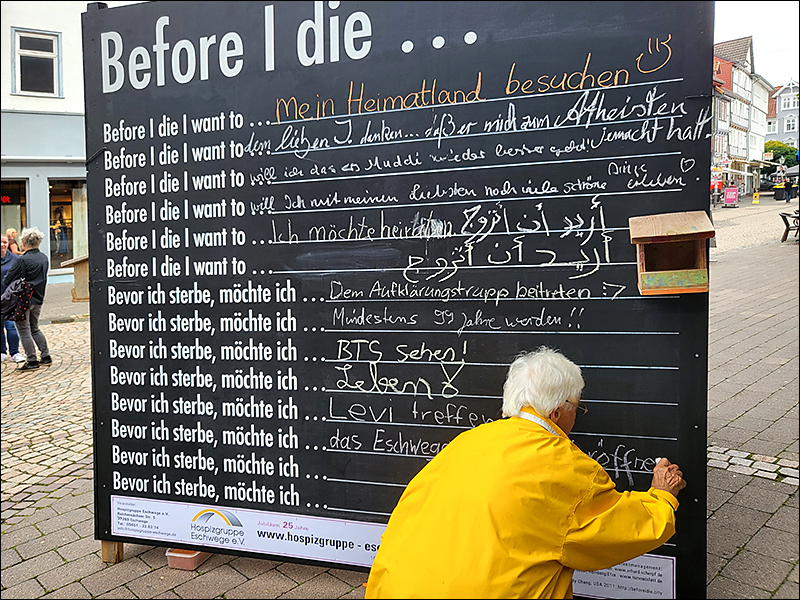 Before I die ...
Before I die I want to ... Mein Heimatland besuchen
Before I die I want to dem lieben J. danken... daß er mich zum Atheisten
gemacht hat.
Before I die I want to ... will ich das es Muddi wieder besser geht!
Before I die I want to ... will Ich mit meinen Liebsten noch viele schöne Dinge erleben.
Before I die I want to ... Ich möchte heiraten أريد أن أتزوج
Before I die I want to ... أريد أن أتزوج
Bevor ich sterbe, möchte ich ... Dem Aufklärungstrupp beitreten :>
Bevor ich sterbe, möchte ich ... Mindestens 99 Jahre werden!!
Bevor ich sterbe, möchte ich ... BTS sehen!
Bevor ich sterbe, möchte ich ... Leben
Bevor ich sterbe, möchte ich ... Levi treffen
Bevor ich sterbe, möchte ich ... das Eschwege
Bevor ich sterbe, möchte ich ...
Bevor ich sterbe, möchte ich ...
Hospizgruppe
Eschwege e.V.
Jubiläum 25 Jahre
www.hospizgruppe - e